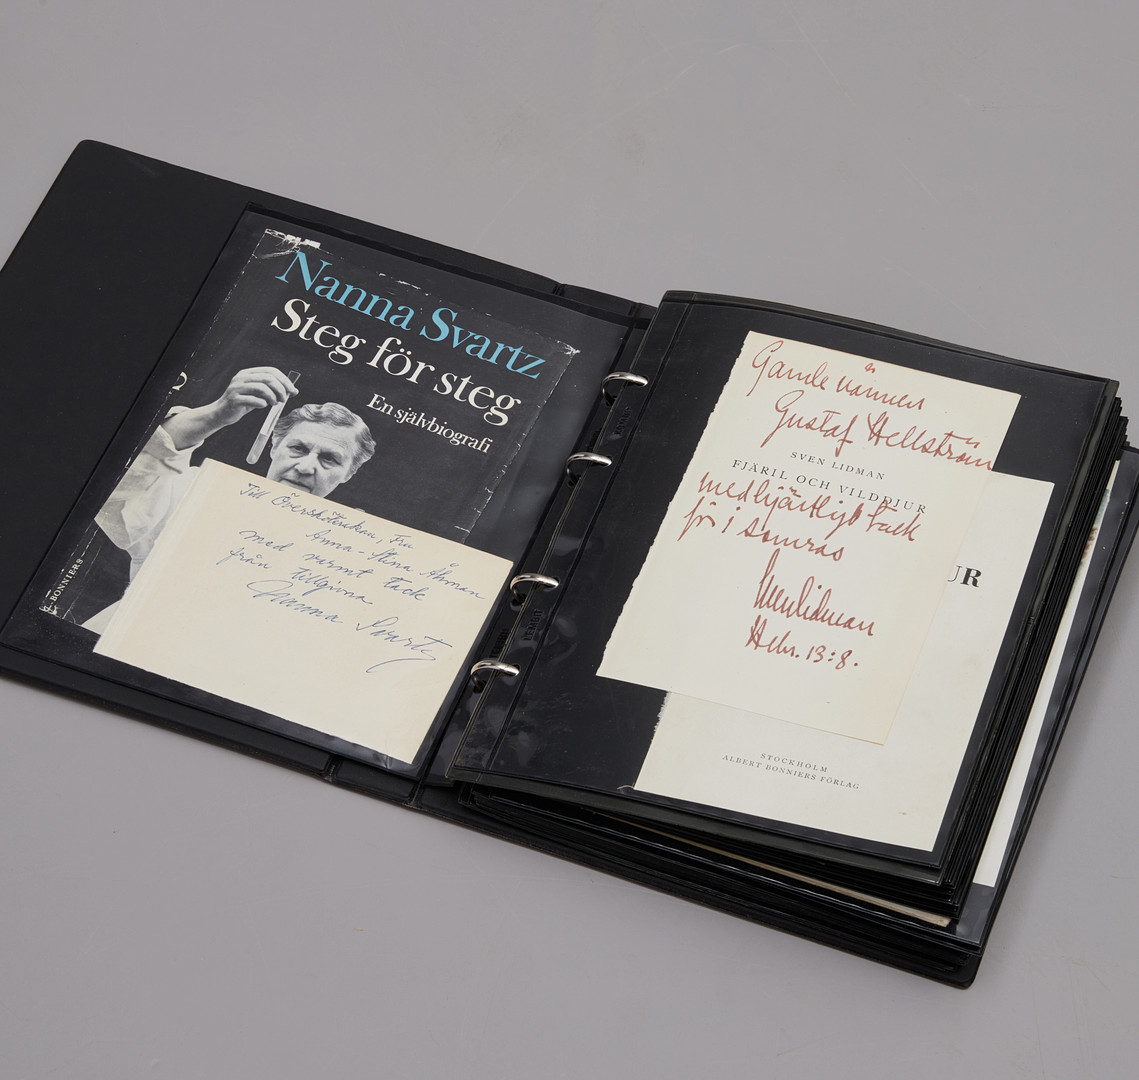 Nanna Svartz
Steg för steg
En självbiografi
BONNIERS
Till Översköterskan, Fru
Anna-Stina Åhman
med varmt tack
från tillgivna
Nanna Svartz
Gamle vännen
Gustaf Hellström
SVEN LIDMAN
FJÄRIL OCH VILDDJUR
med hjärtligt tack
för i somras
Sven Lidman
Hebr. 13:8.
UR
STOCKHOLM
ALBERT BONNIERS FÖRLAG